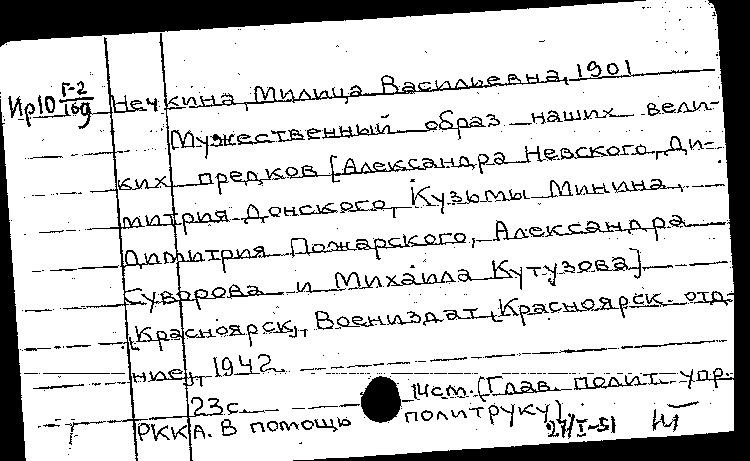 Ир10 Г-2/169 Нечкина, Милица Васильевна, 1901
Мужественный образ наших вели-
ких предков [Александра Невского, Ди-
митрия Донского, Кузьмы Минина,
Димитрия Пожарского, Александра
Суворова и Михаила Кутузова]
[Красноярск], Воениздат, [Красноярск. отд-
ние], 1942.
23с. 14см. (Глав. полит. упр.
РККА. В помощь политруку)
27/I-51